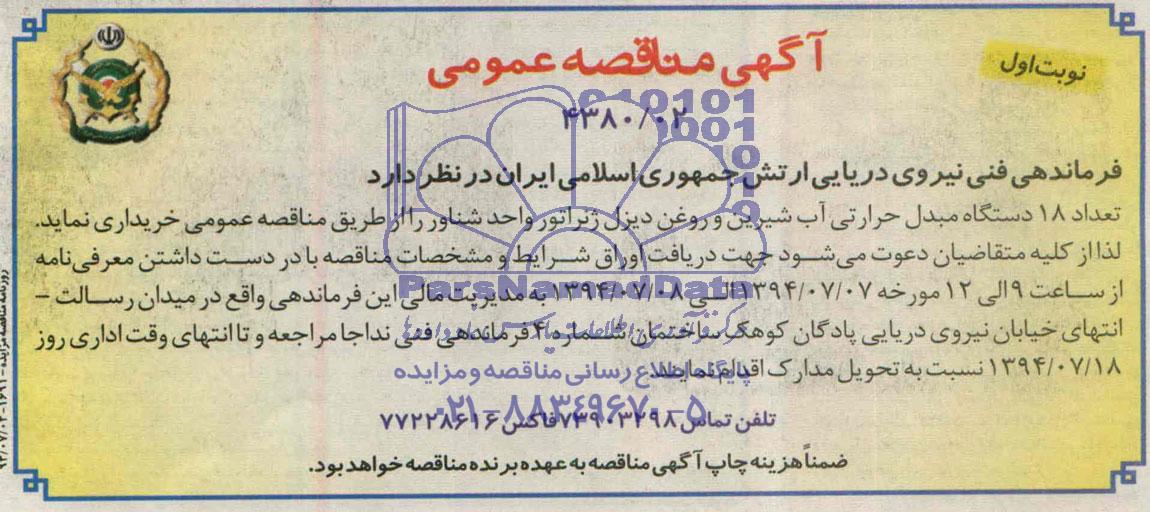 نوبت اول
آگهی مناقصه عمومی
۴۳۸۰/۰۲
فرماندهی فنی نیروی دریایی ارتش جمهوری اسلامی ایران در نظر دارد
تعداد ۱۸ دستگاه مبدل حرارتی آب شیرین و روغن دیزل ژنراتور واحد شناور را از طریق مناقصه عمومی خریداری نماید.
لذا از کلیه متقاضیان دعوت می‌شود جهت دریافت اوراق شرایط و مشخصات مناقصه با در دست داشتن معرفی‌نامه
از ساعت ۹ الی ۱۲ مورخه ۱۳۹۴/۰۷/۰۷ الی ۱۳۹۴/۰۷/۰۸ به مدیریت مالی این فرماندهی واقع در میدان رسالت –
انتهای خیابان نیروی دریایی پادگان کوهک ساختمان شماره ۴ فرماندهی فنی نداجا مراجعه و تا انتهای وقت اداری روز
۱۳۹۴/۰۷/۱۸ نسبت به تحویل مدارک اقدام نمایند.
تلفن تماس ۷۳۹۰۳۲۹۸ فاکس ۷۷۲۲۸۶۱۶
ضمناً هزینه چاپ آگهی مناقصه به عهده برنده مناقصه خواهد بود.
ParsNamadData
پایگاه اطلاع رسانی مناقصه و مزایده
۰۲۱–۸۸۳۴۹۶۷۰–۵